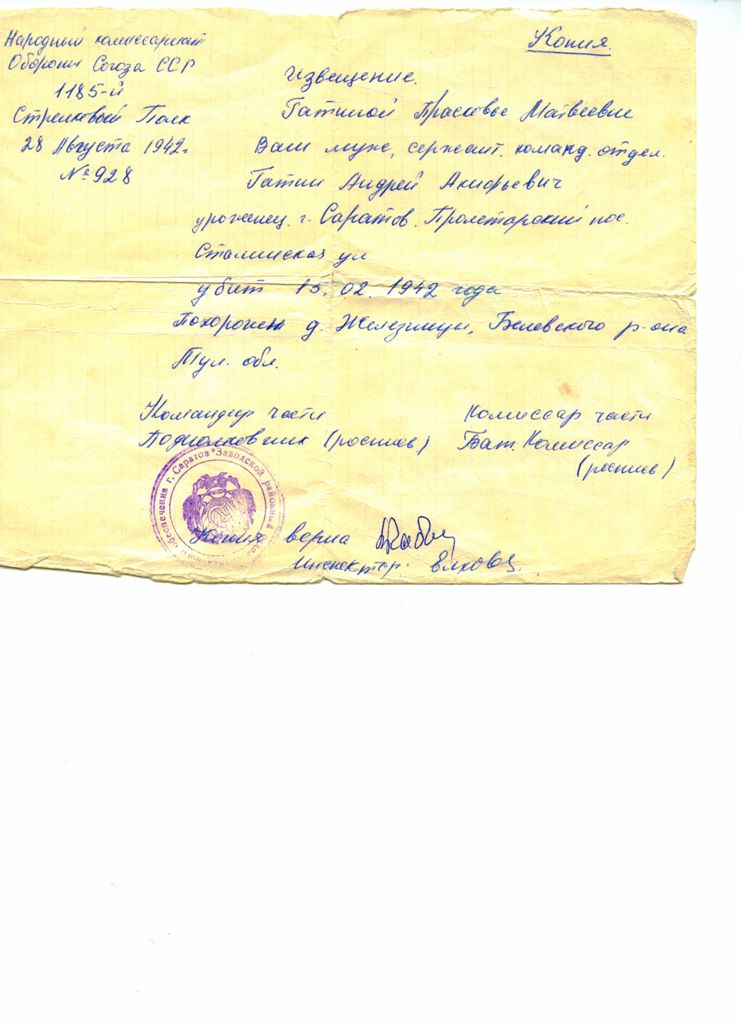 Народный комиссариат
Обороны Союза ССР
1185-й
Стрелковый Полк
28 Августа 1942г
№928
Копия.
Извещение.
Гатиной Прасковье Матвеевне
Ваш муж, сержант. команд. отдел.
Гатин Андрей Акифьевич
уроженец г. Саратов. Пролетарский пос.
Сталинская ул
убит 15.02.1942 года
Похоронен д. Железници, Белевского р-она
Тул. обл.
Командир части
Подполковник (роспись)
Комиссар части
Бат. Комиссар
(роспись)
обеспечения г. Саратов * Заводской районный
Копия верна
Инспектор: